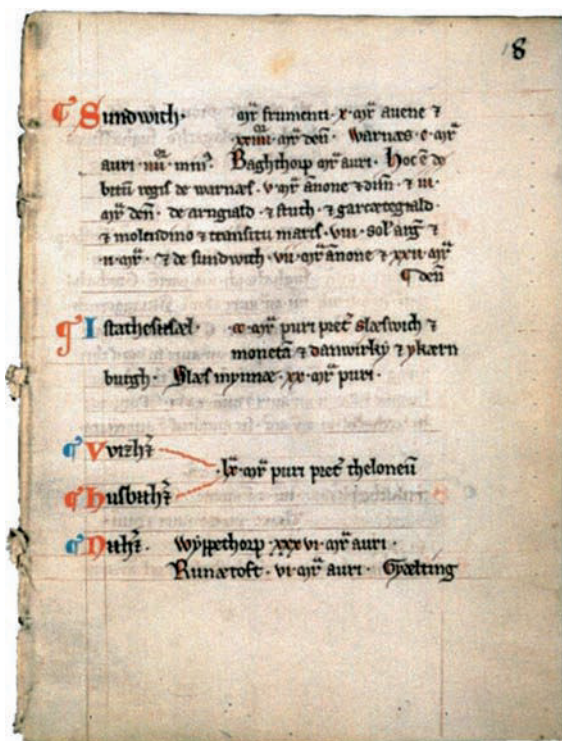 18
¶ Sundwich. mr̄ frumenti. x. mr̄ auene ⁊
xxiiii mr̄ den̄. Warnæs. e. mr̄
auri. iiii. min᷎. Baghthorp mr̄ auri. Hoc ē de
bitū regis de warnæs. v. mr̄ ānone ⁊ dim̄. ⁊ iii.
mr̄ den̄. de arngiald. ⁊ stuth. ⁊ garcætegiald
⁊ molendino ⁊ transitu maris. viii. sol̄ arḡ. ⁊
ii. mr̄. ⁊ de sundwich. vii. mr̄ ānone ⁊ xxii mr̄
¶ den̄
¶ Istathesisæl. mr̄ puri pret̄ slæswich ⁊
monetā ⁊ danwirky ⁊ ykærn
burgh. Slæs mynnæ. xx. mr̄ puri.
¶ Vvizh̄
lx. mr̄ puri pret̄ theloneū
¶ Husbith̄
¶ Nith̄. Wyppethorp. xxxvi. mr̄ auri.
Runætoft. vi. mr̄ auri. Gyælting